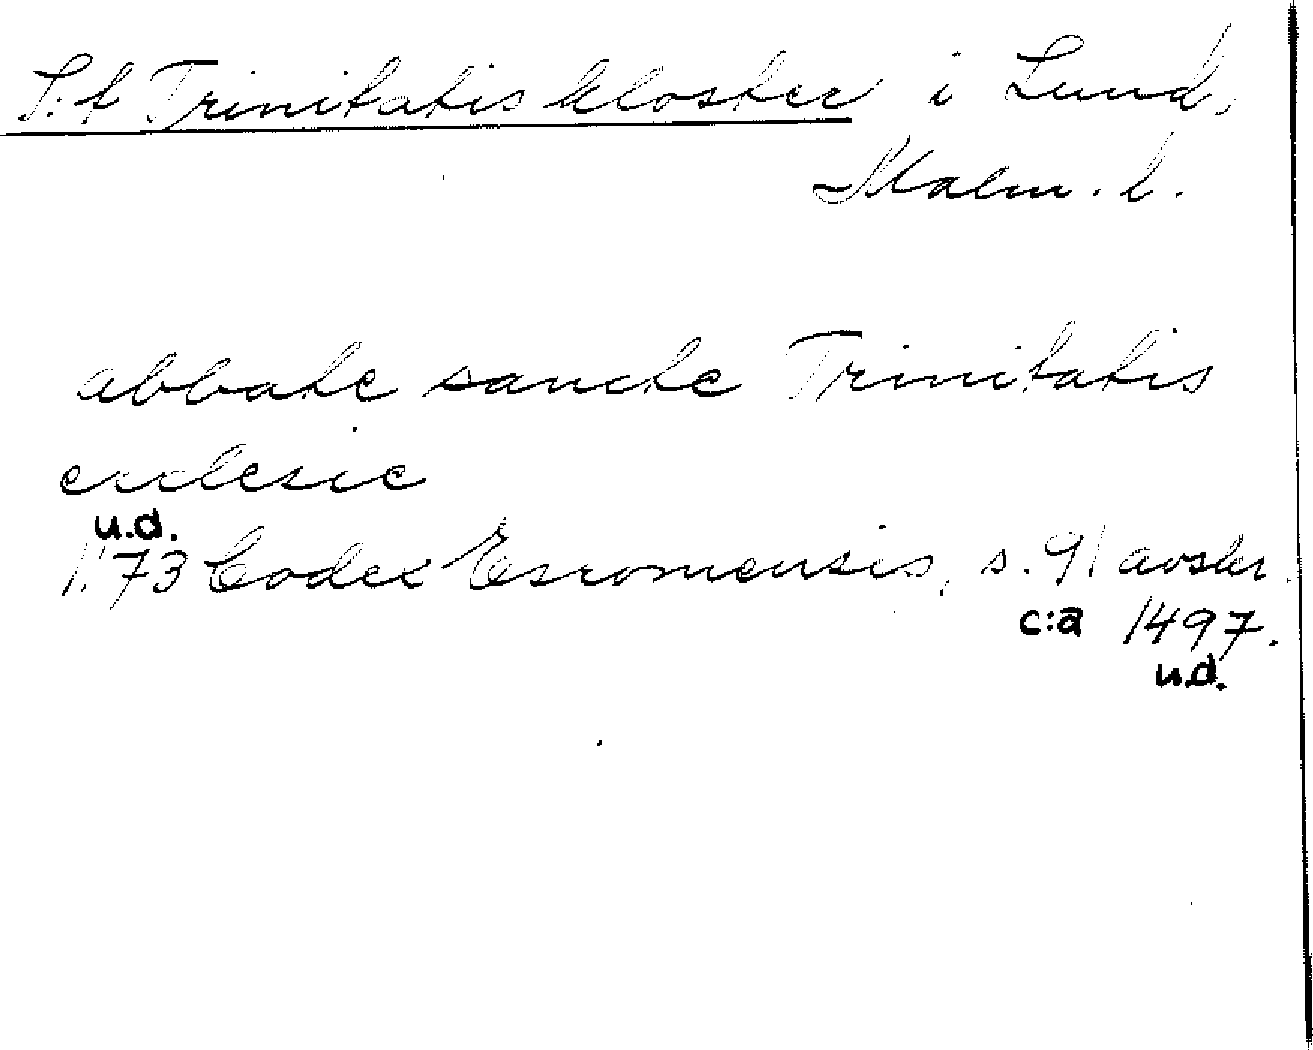 S:t Trinitatis kloster i Lund,
Malm. l.
abbate sancte Trinitatis
ecclesie
u.d.
1173 Codex Esromensis, s. 91 avskr.
c:a 1497.
u.d.